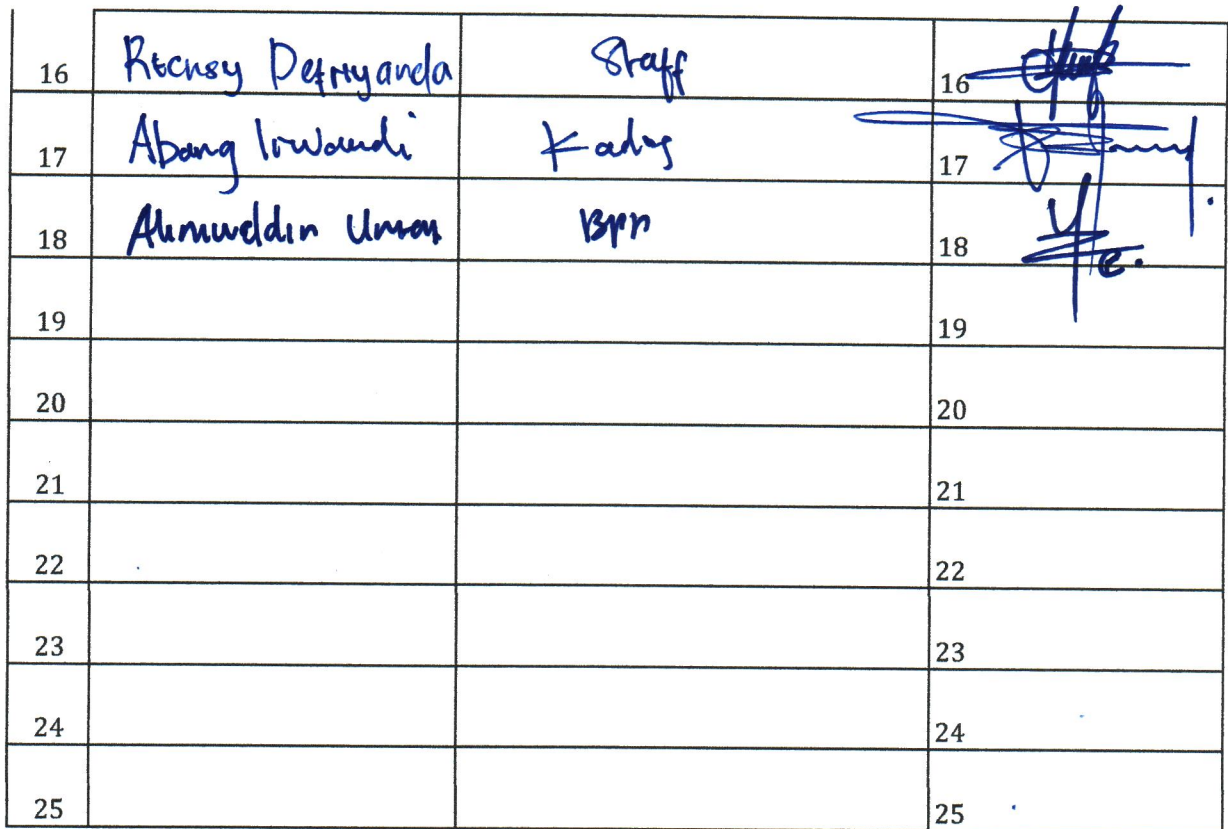 16 Recnsy Defriyanda Staff 16
17 Abang Irwandi Kadis 17
18 Umar 18
19 19
20 20
21 21
22 22
23 23
24 24
25 25